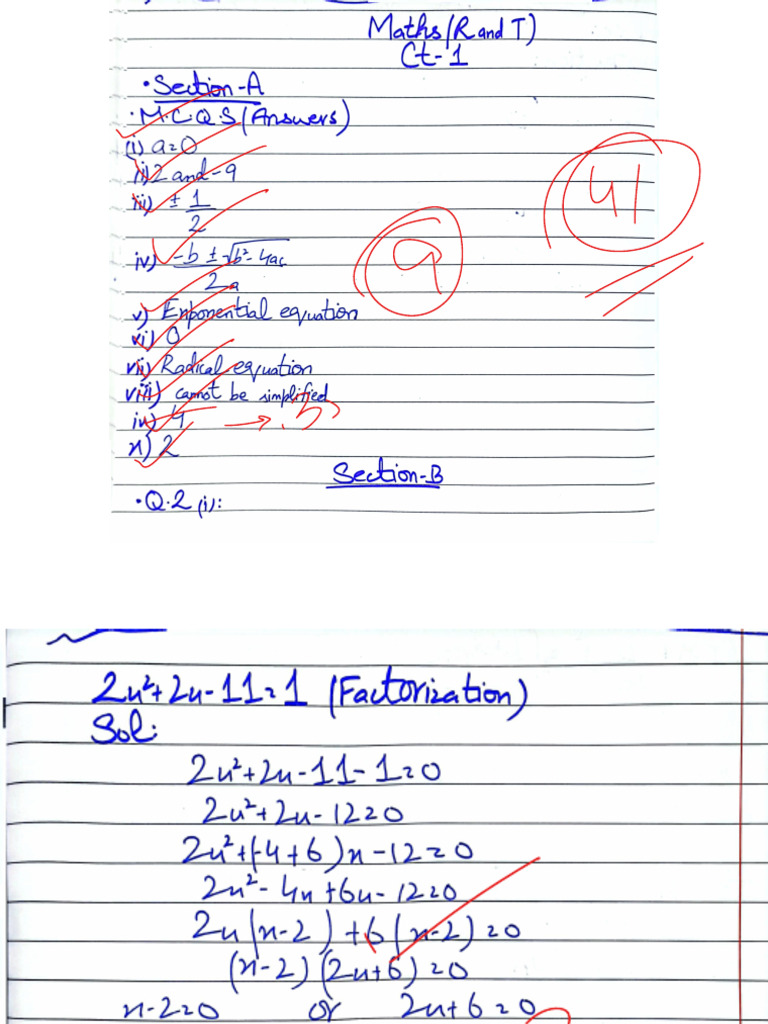 Maths (R and T)
Ct-1
• Section-A
• M.C.Q.S (Answers)
(i) a=0
ii) 2 and -9
iii) ± 1/2
41
iv) -b ± √b²-4ac / 2a
9
v) Exponential equation
vi) 0
vii) Radical equation
viii) cannot be simplified
ix) 4 →
x) 2
Section-B
• Q.2 (i):
2x²+2x-11=1 (Factorization)
Sol:
2x²+2x-11-1=0
2x²+2x-12=0
2x²+(-4+6)x-12=0
2x²-4x+6x-12=0
2x(x-2)+6(x-2)=0
(x-2)(2x+6)=0
x-2=0 or 2x+6=0